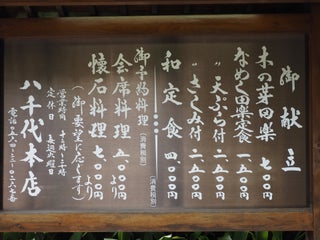 御献立
木の芽田楽 七〇〇
なめし田楽定食 一、五〇〇
〃 天ぷら付 二、五〇〇
〃 さしみ付 二、五〇〇
和定食 四、〇〇〇
(消費税別)
御予約料理 (消費税別)
会席料理 五、〇〇〇円より
懐石料理 七、〇〇〇円より
(御要望に応じます)
営業時間
定休日 毎週火曜日
八千代本店
電話